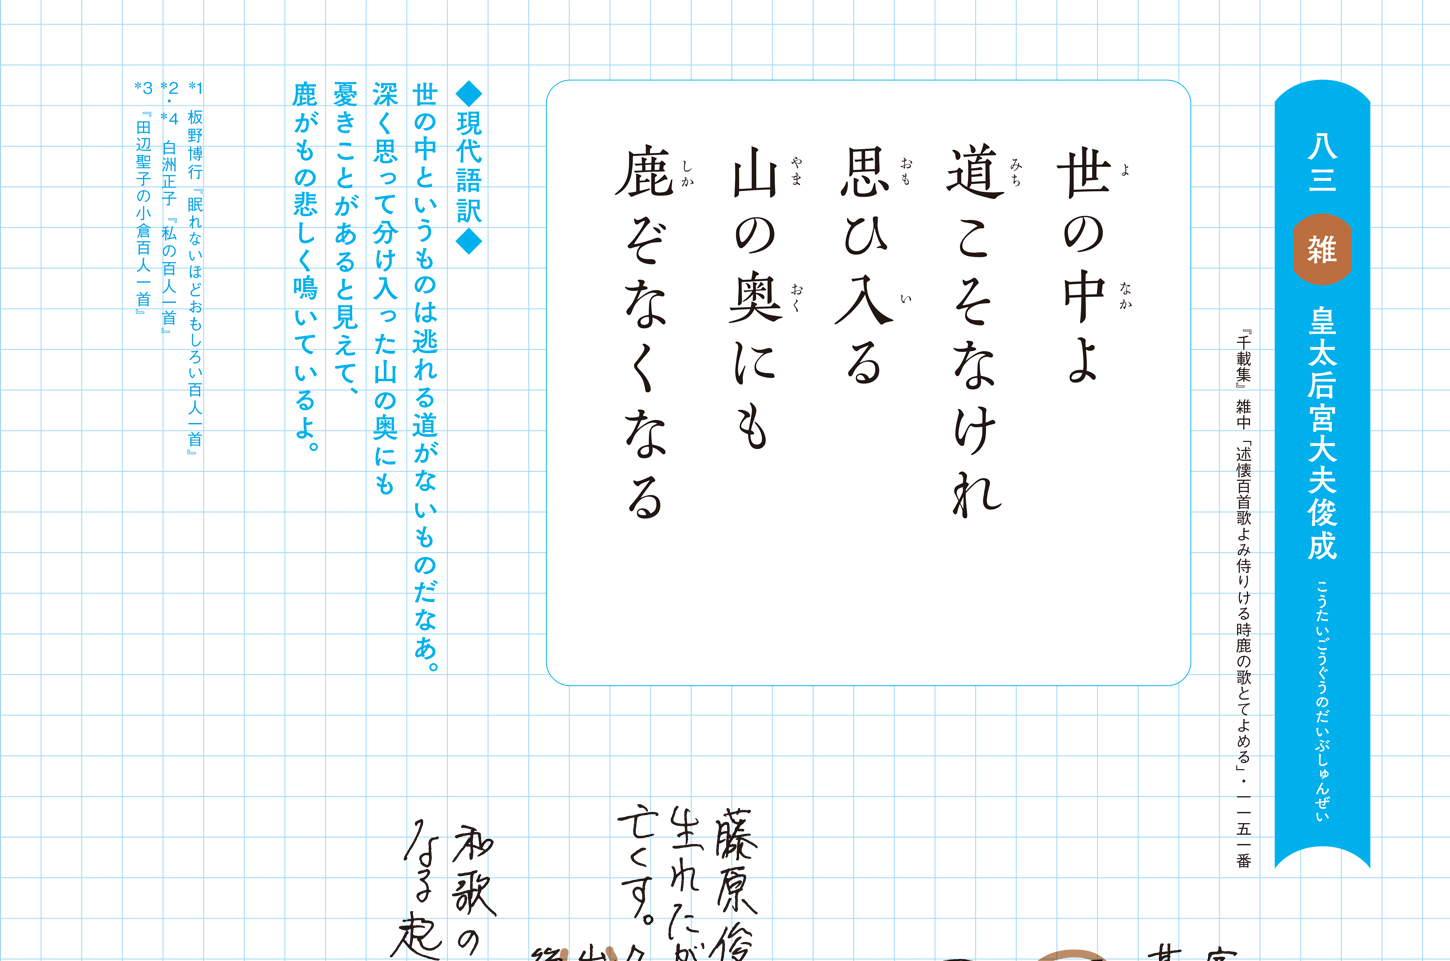 八三 雑 皇太后宮大夫俊成 こうたいごうぐうのだいぶしゅんぜい
『千載集』雑中「述懐百首歌よみ侍りける時鹿の歌とてよめる」・一一五一番
世の中よ
よ なか
道こそなけれ
みち
思ひ入る
おも い
山の奥にも
やま おく
鹿ぞなくなる
しか
◆現代語訳◆
世の中というものは逃れる道がないものだなあ。
深く思って分け入った山の奥にも
憂きことがあると見えて、
鹿がもの悲しく鳴いているよ。
*1 板野博行『眠れないほどおもしろい百人一首』
*2・*4 白洲正子『私の百人一首』
*3 『田辺聖子の小倉百人一首』
藤原俊
生れたが
亡くす。
和歌の
なる起